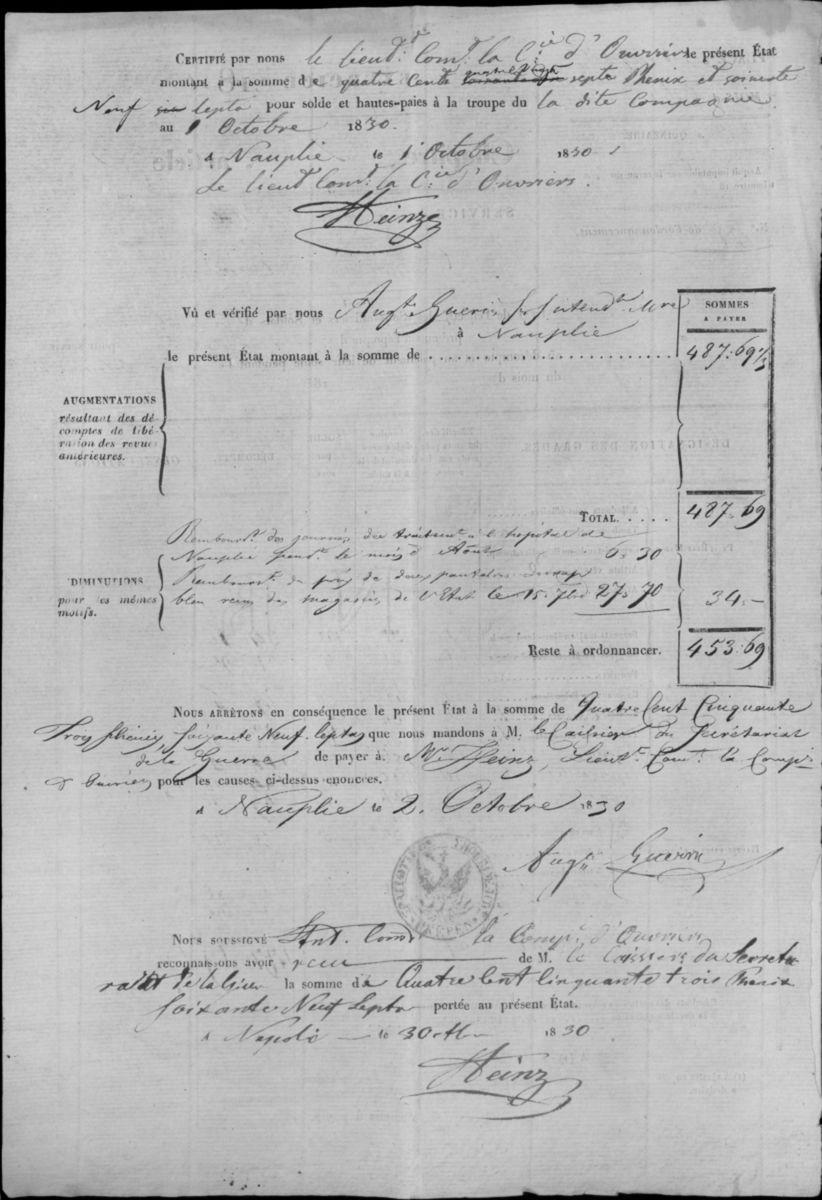 CERTIFIÉ par nous le lieut.t Com.t la C.ie d'Ouvriers le présent État
montant à la somme de quatre Cents quatre vingt septs Phenix et soixante
Neuf lepta pour solde et hautes-paies à la troupe du la dite Compagnie
au 1 Octobre 1830.
à Nauplie le 1 Octobre 1830
Le lieut Com.t la C.ie d'Ouvriers.
Heinz
Vù et vérifié par nous Aug.te Guerin Mre
à Nauplie
SOMMES
A PAYER
le présent État montant à la somme de 487.69 1/3
AUGMENTATIONS
résultant des dé-
comptes de libé-
ration des revues
antérieures.
TOTAL..... 487.69
Rembours.t des journées de traitem.t à l'hopital de
Nauplie pend.t le mois d'Aout 6.30
DIMINUTIONS
pour les mêmes
motifs.
Rembours.t du prix de deux pantalons
bleu recus des magasins de l'Etat le 15. 27.70 34.–
Reste à ordonnancer. 453.69
NOUS ARRÊTONS en conséquence le présent État à la somme de Quatre Cent Cinquante
Trois phenix, soixante Neuf leptas que nous mandons à M. le Caissier du Secrétariat
de la Guerre de payer à Mr. Heinz, Lieut.t Com.t la Comp.ie
d'Ouvriers pour les causes ci-dessus énoncées.
à Nauplie le 2. Octobre 1830
Aug.te Guerin
NOUS SOUSSIGNÉ Com.t la Comp.ie d'Ouvriers
reconnaissons avoir recu de M. le Caissiers du Secreta
riat de la Guer la somme de Quatre Cent Cinquante trois Phenix
Soixante Neuf Lepta portée au présent État.
à Napoli le 3 Oct 1830
Heinz